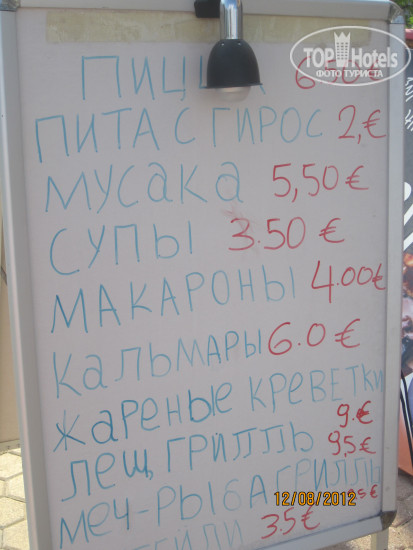 TOP Hotels
ФОТО ТУРИСТА
ПИЦЦА
ПИТА С ГИРОС 2,€
МУСАКА 5,50 €
СУПЫ 3.50 €
МАКАРОНЫ 4.00€
КАЛЬМАРЫ 6.0 €
ЖАРЕНЫЕ КРЕВЕТКИ
9.€
ЛЕЩ ГРИЛЛЬ 9,5€
МЕЧ-РЫБА ГРИЛЛЬ
12/08/2012
3.5€